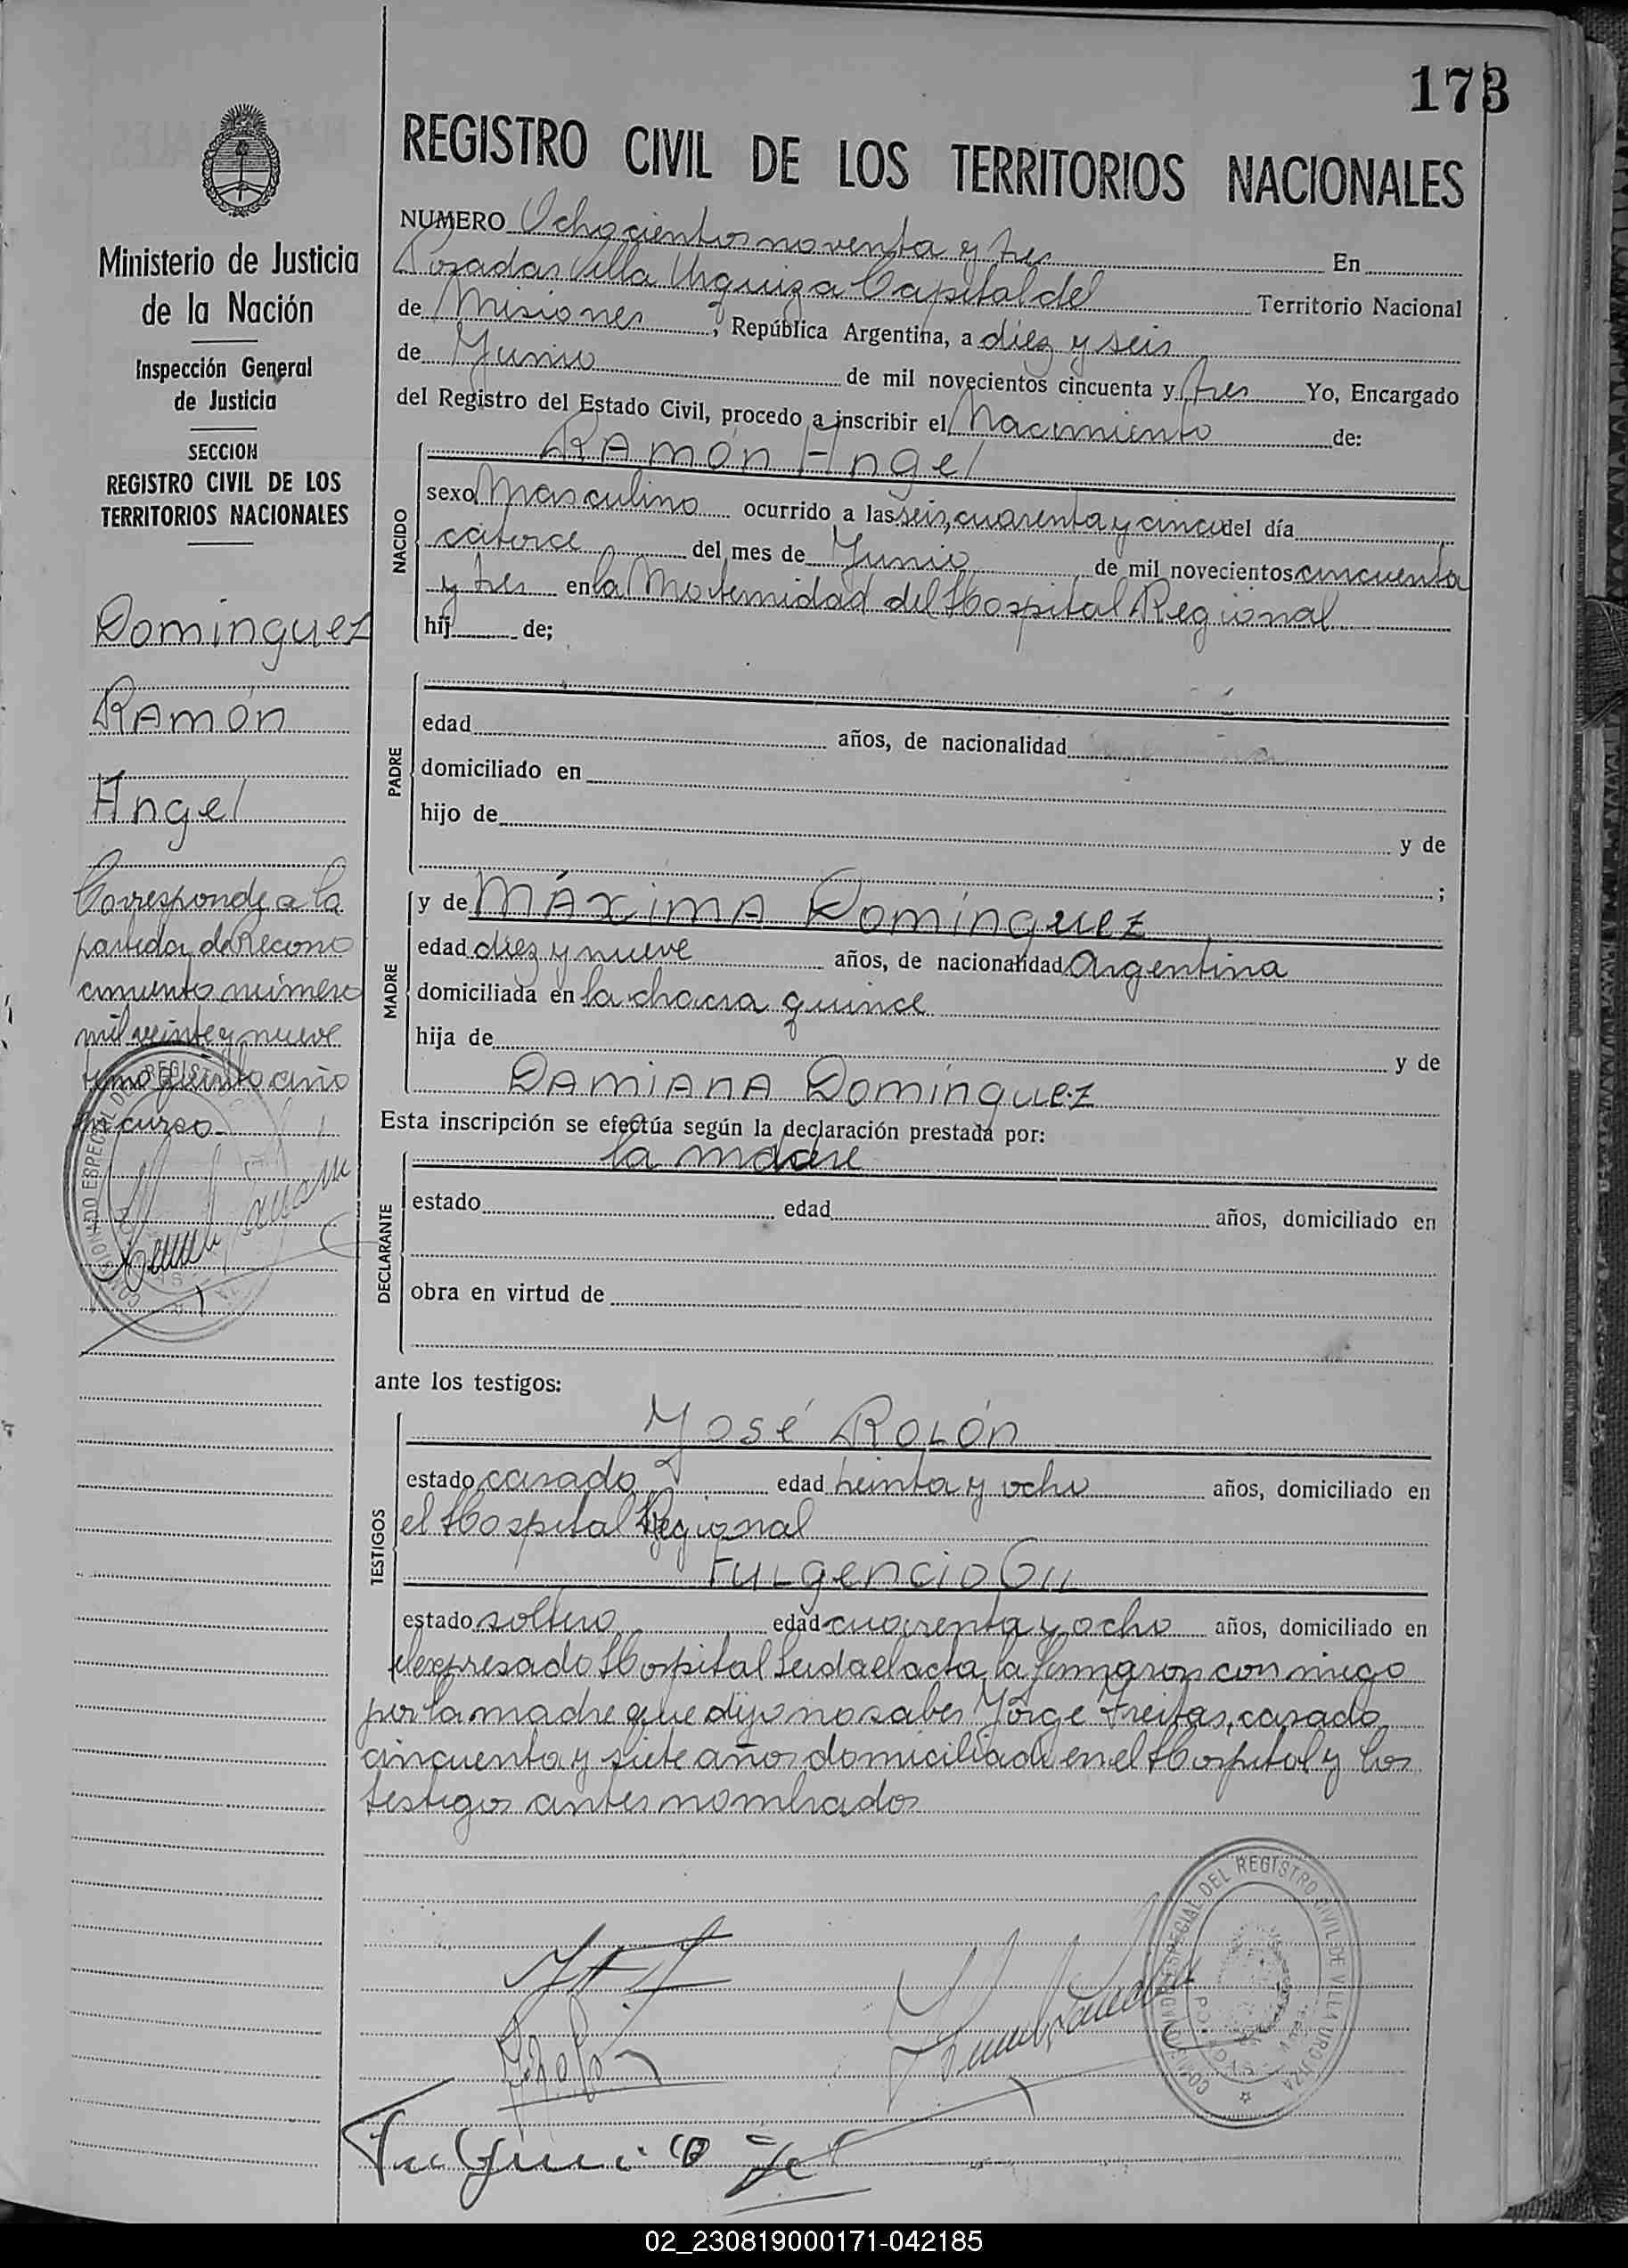 173
REGISTRO CIVIL DE LOS TERRITORIOS NACIONALES
Ministerio de Justicia
de la Nación
Inspección General
de Justicia
SECCION
REGISTRO CIVIL DE LOS
TERRITORIOS NACIONALES
Dominguez
Ramón
Angel
Corresponde a la
partida de Recono
cimiento número
mil veinte y nueve
tomo quinto año
en curso
NUMERO Ochocientos noventa y tres En
Posadas Villa Urquiza Capital del Territorio Nacional
de Misiones, República Argentina, a diez y seis
de Junio de mil novecientos cincuenta y tres Yo, Encargado
del Registro del Estado Civil, procedo a inscribir el Nacimiento de:
NACIDO
Ramón Angel
sexo Masculino ocurrido a las seis, cuarenta y cinco del día
catorce del mes de Junio de mil novecientos cincuenta
y tres en la Maternidad del Hospital Regional
hij de;
PADRE
edad años, de nacionalidad
domiciliado en
hijo de y de
;
MADRE
y de Máxima Domínguez
edad diez y nueve años, de nacionalidad Argentina
domiciliada en la chacra quince
hija de y de
Damiana Domínguez
Esta inscripción se efectúa según la declaración prestada por:
DECLARANTE
la madre
estado edad años, domiciliado en
obra en virtud de
ante los testigos:
TESTIGOS
José Rolón
estado casado edad treinta y ocho años, domiciliado en
el Hospital Regional
Fulgencio Gil
estado soltero edad cuarenta y ocho años, domiciliado en
el expresado Hospital Leida el acta, la firmaron con migo
por la madre que dijo no saber Jorge Freitas, casado,
cincuenta y siete años domiciliado en el Hospital y los
testigos antes nombrados
COMISIONADO ESPECIAL DEL REGISTRO CIVIL DE VILLA URQUIZA
POSADAS
02_230819000171-042185